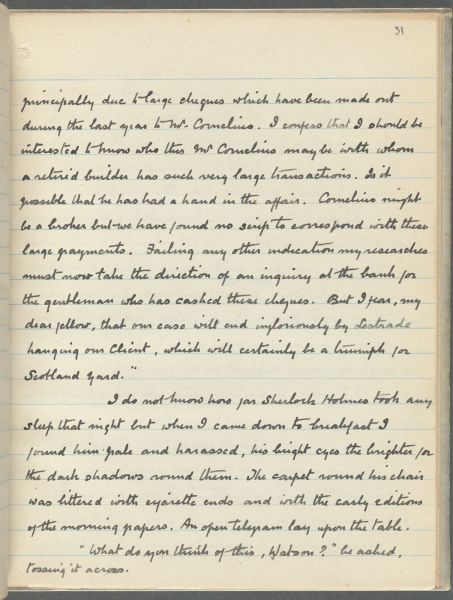 31
principally due to large cheques which have been made out
during the last year to Mr. Cornelius. I confess that I should be
interested to know who this Mr Cornelius may be with whom
a retired builder has such very large transactions. Is it
possible that he has had a hand in the affair. Cornelius might
be a broker but we have found no scrip to correspond with these
large payments. Failing any other indication my researches
must now take the direction of an inquiry at the bank for
the gentleman who has cashed these cheques. But I fear, my
dear fellow, that our case will end ingloriously by Lestrade
hanging our Client, which will certainly be a triumph for
Scotland Yard."
I do not know how far Sherlock Holmes took any
sleep that night but when I came down to breakfast I
found him pale and harassed, his bright eyes the brighter for
the dark shadows round them. The carpet round his chair
was littered with cigarette ends and with the early editions
of the morning papers. An open telegram lay upon the table.
"What do you think of this, Watson?" he asked,
tossing it across.